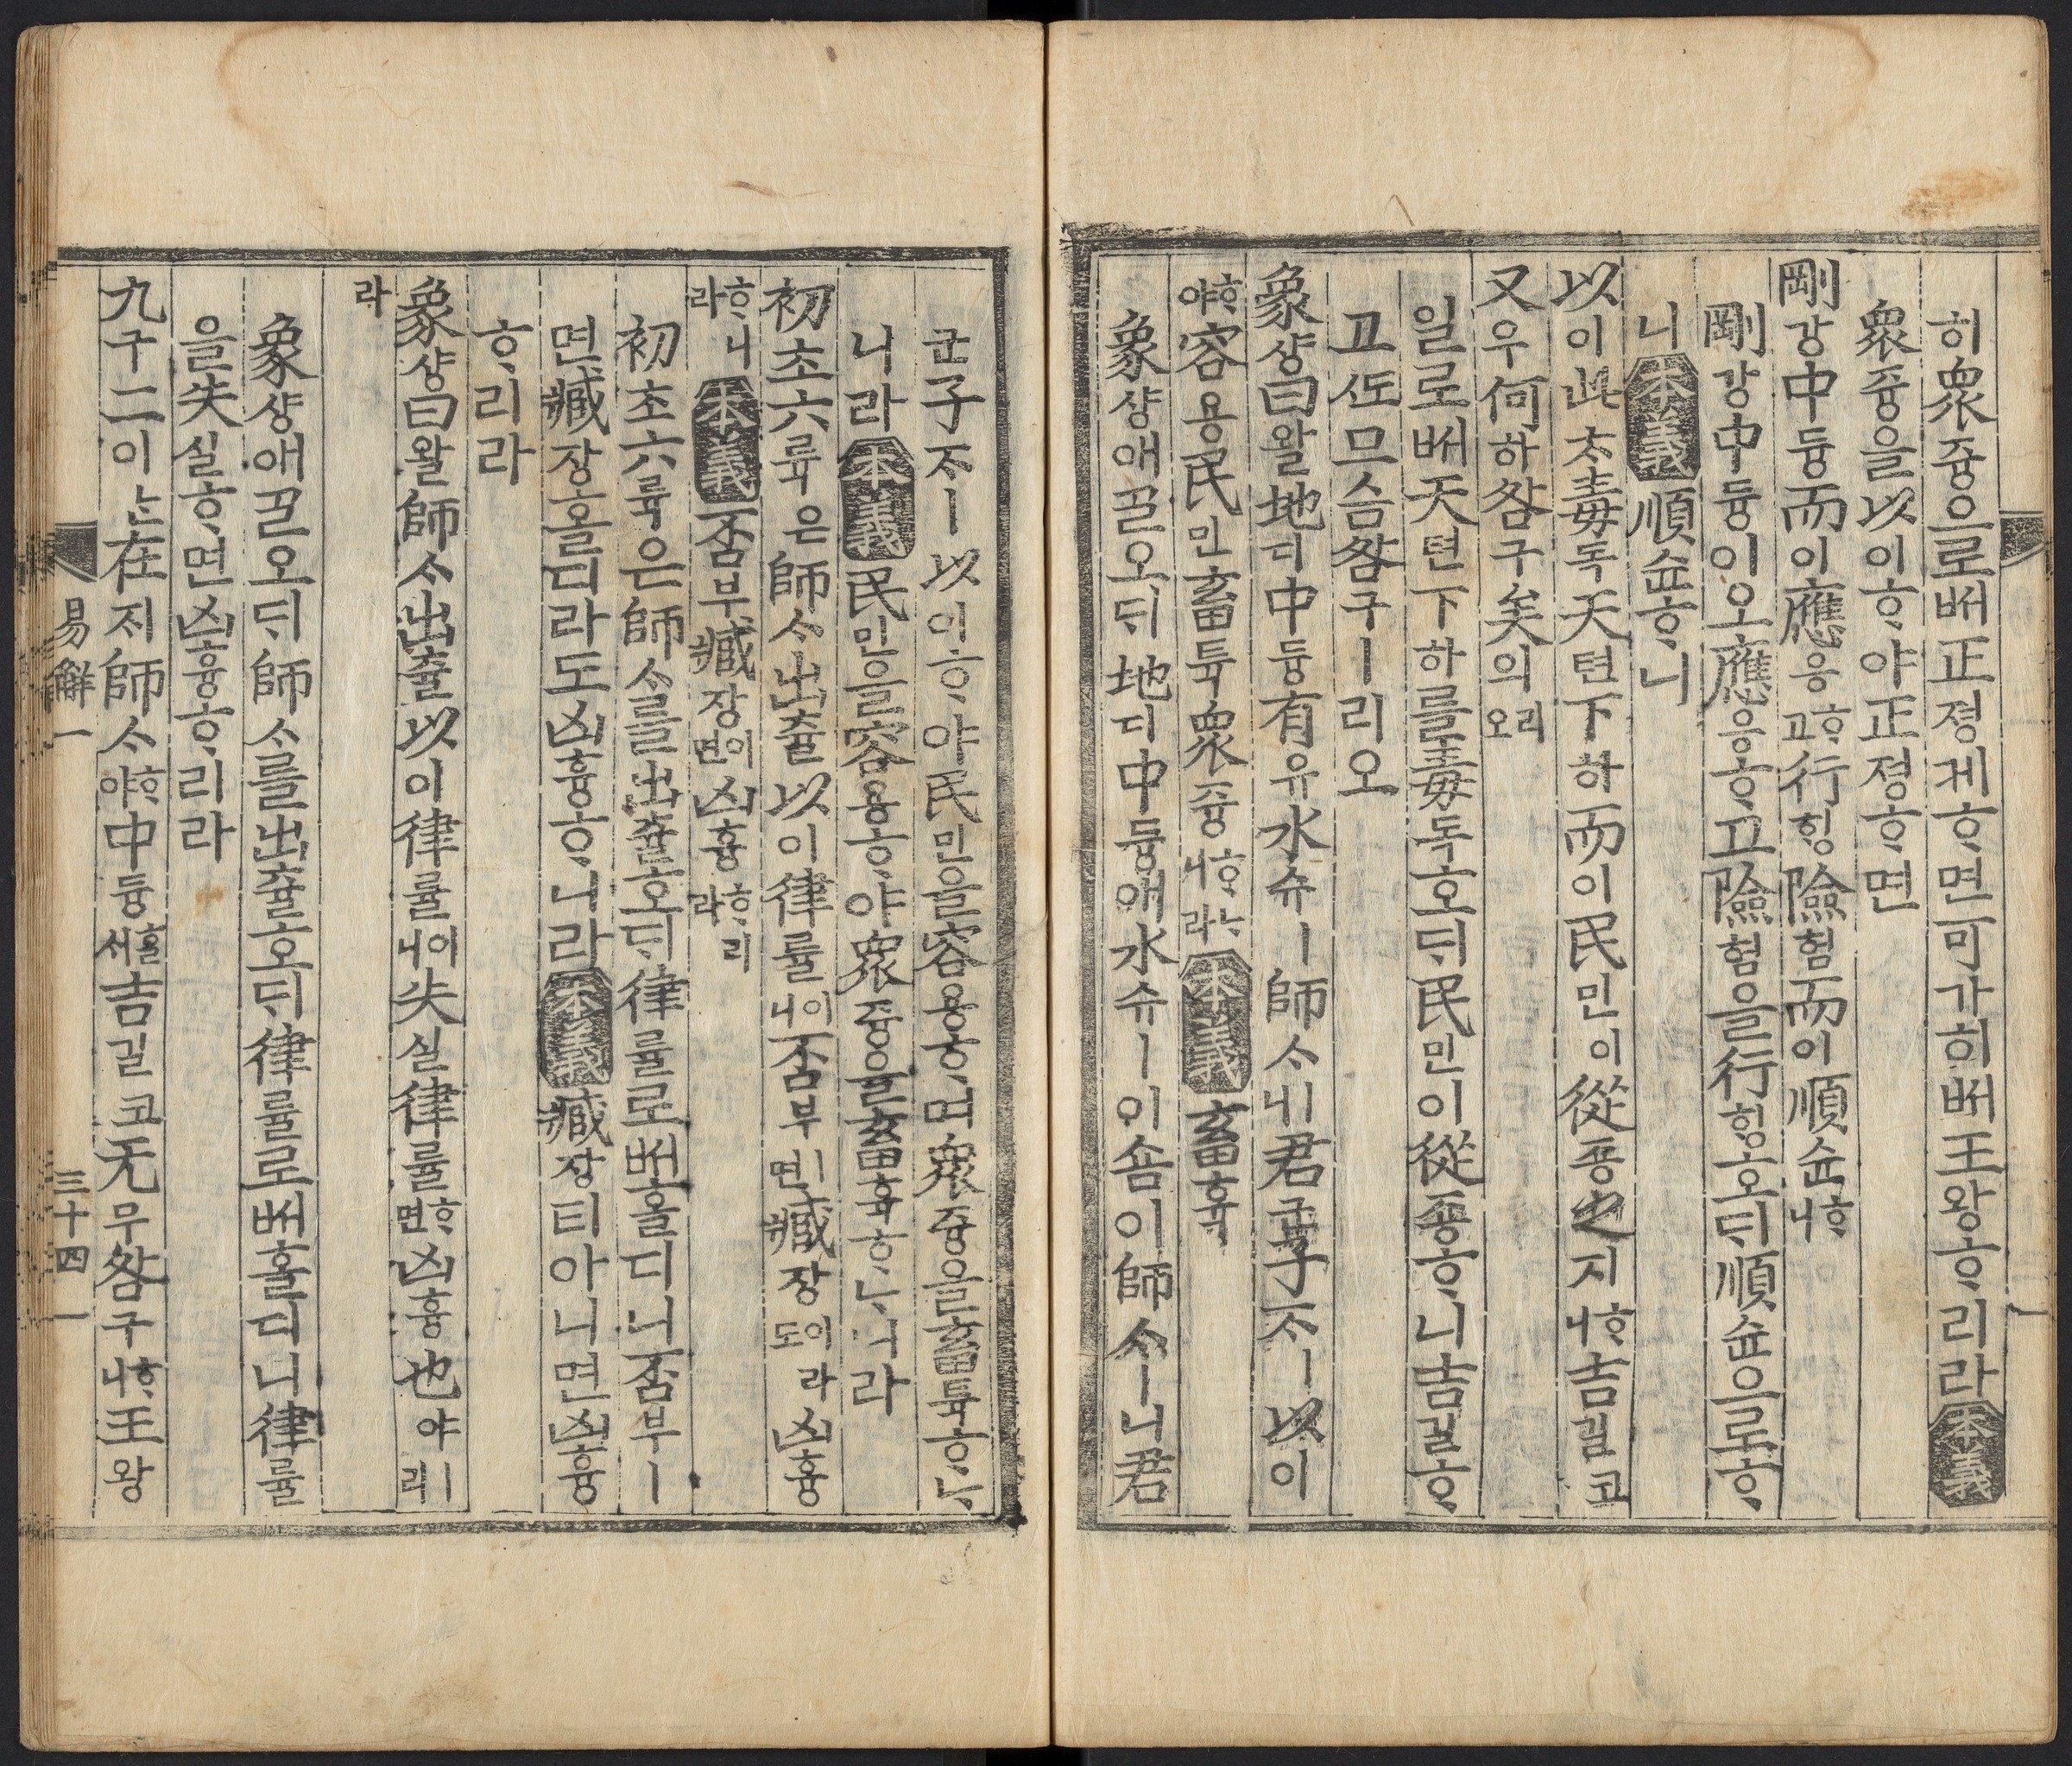 히衆즁으로ᄡᅥ正졍케ᄒᆞ면可가히ᄡᅥ王왕ᄒᆞ리라本義
衆즁을以이ᄒᆞ야正졍ᄒᆞ면
剛강中듕而이應응ᄒᆞ고行ᄒᆡᆼ險험而이順슌ᄒᆞ니
剛강中듕이오應응ᄒᆞ고險험을行ᄒᆡᆼ호ᄃᆡ順슌으로ᄒᆞ
니本義順슌ᄒᆞ니
以이此ᄎᆞ毒독天텬下하而이民민이從죵之지ᄒᆞ니吉길코
又우何하咎구矣의리오
일로ᄡᅥ天텬下하를毒독호ᄃᆡ民민이從죵ᄒᆞ니吉길ᄒᆞ
고ᄯᅩ므슴咎구ㅣ리오
象샹曰왈地디中듕有유水슈ㅣ師ᄉᆞㅣ니君군子ᄌᆞㅣ以이
ᄒᆞ야容용民민畜튝衆즁ᄒᆞᄂᆞ니라本義畜휵
象샹애ᄀᆞᆯ오ᄃᆡ地디中듕애水슈ㅣ이숌이師ᄉᆞㅣ니君
군子ᄌᆞㅣ以이ᄒᆞ야民민을容용ᄒᆞ며衆즁을畜튝ᄒᆞᄂᆞ
니라本義民민을容용ᄒᆞ야衆즁을畜휵ᄒᆞᄂᆞ니라
初초六륙은師ᄉᆞ出츌以이律률이니否부ㅣ면臧장이라도凶흉
ᄒᆞ니라本義否부臧장이면凶흉ᄒᆞ리라
初초六륙은師ᄉᆞ를出츌호ᄃᆡ律률로ᄡᅥ홀디니否부ㅣ
면臧장홀디라도凶흉ᄒᆞ니라本義臧장티아니면凶흉
ᄒᆞ리라
象샹曰왈師ᄉᆞ出츌以이律률이니失실律률ᄒᆞ면凶흉也야ㅣ리
라
象샹애ᄀᆞᆯ오ᄃᆡ師ᄉᆞ를出츌호ᄃᆡ律률로ᄡᅥ홀디니律률
을失실ᄒᆞ면凶흉ᄒᆞ리라
九구二이ᄂᆞᆫ在ᄌᆡ師ᄉᆞᄒᆞ야中듕ᄒᆞᆯᄉᆡ吉길코无무咎구ᄒᆞ니王왕
易解一 三十四